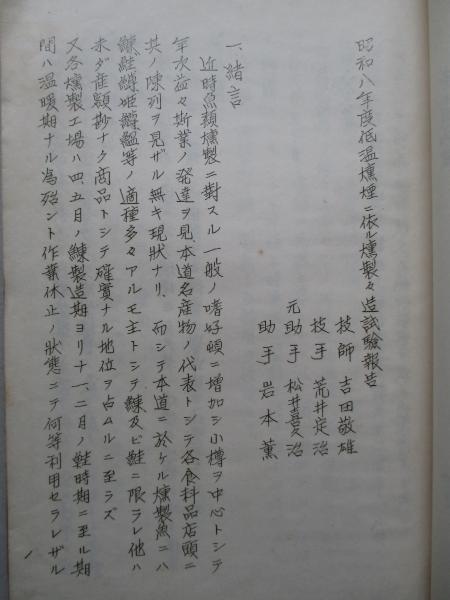 昭和八年度低温燻煙ニ依ル燻製々造試驗報告
技師 吉田敬雄
技手 荒井定治
元助手 松井喜久治
助手 岩本薰
一、緒言
近時魚類燻製ニ對スル一般ノ嗜好頓ニ增加シ小樽ヲ中心トシテ
年次益々斯業ノ發達ヲ見本道名産物ノ代表トシテ各食料品店頭ニ
其ノ陳列ヲ見ザル無キ現狀ナリ、而シテ本道ニ於ケル燻製魚ニハ
鰊鮭鱒姫鱒鰮等ノ適種多々アルモ主トシテ鰊及ビ鮭ニ限ラレ他ハ
未ダ産額尠ナク商品トシテ確實ナル地位ヲ占ムルニ至ラズ
又各燻製工場ハ四、五月ノ鰊製造期ヨリ十一、二月ノ鮭時期ニ至ル期
間ハ温暖期ナル為殆ント作業休止ノ狀態ニテ何等利用セラレザル